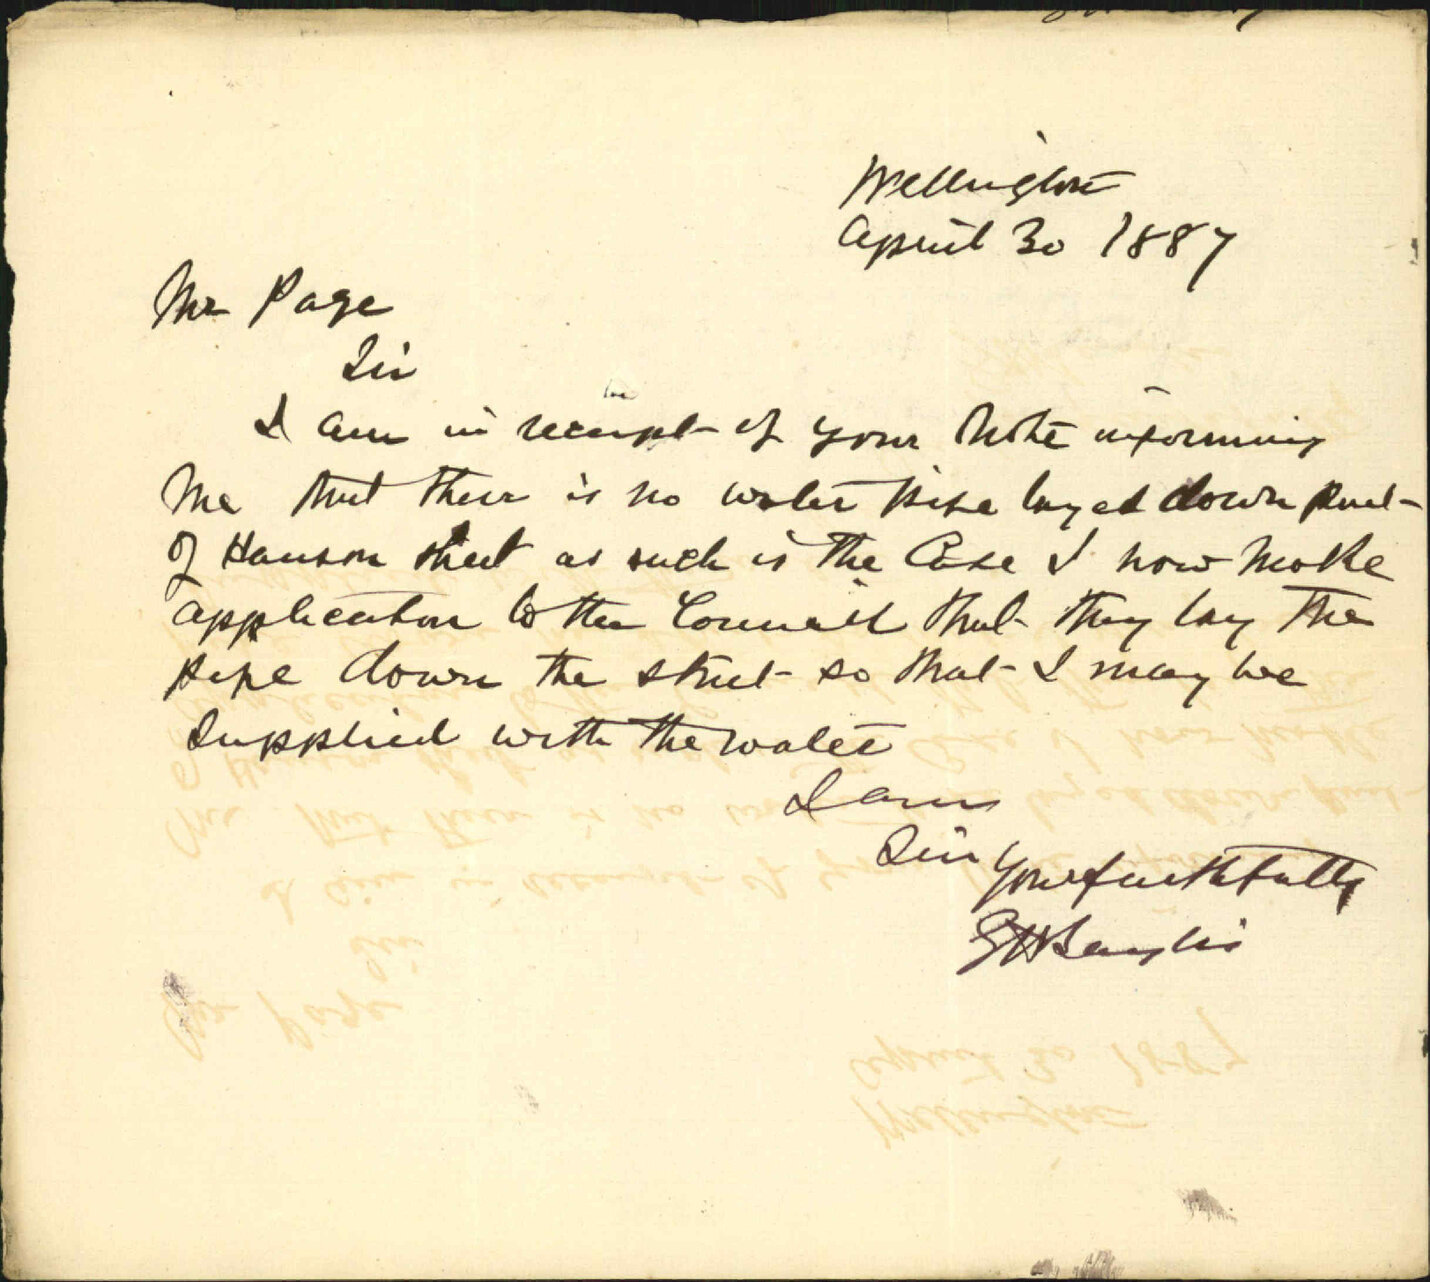 Wellington
April 30 1887
Mr Page
Sir
I am in receipt of your Note informing
Me that their is no water pipe layed down part
of Hanson street as such is the Case I now Make
application to the Council that they lay the
pipe down the street so that I may be
Supplied with the water
I am
Sir
Your faithfully
G H Baylis